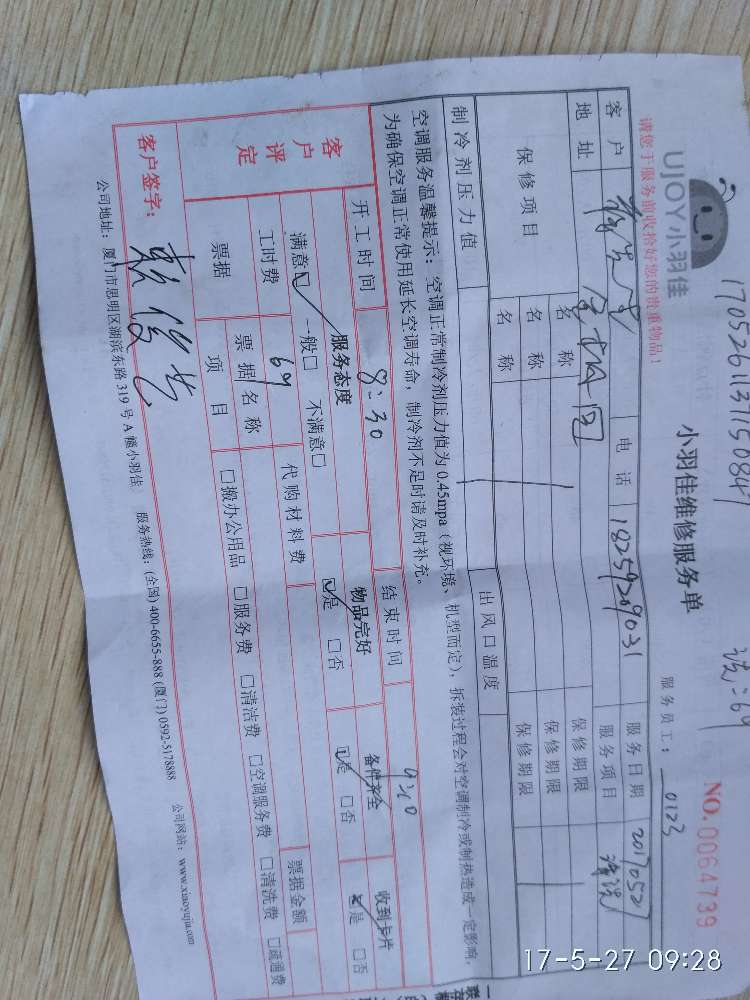 170526113115084
洗:69
UJOY小羽佳
小羽佳维修服务单
NO.0064739
请您于服务前收拾好您的贵重物品！
服务员工：0123
客户
电话 18259209031
服务日期 20170527
地址
服务项目 清洗
保修项目
名称
保修期限
名称
保修期限
名称
保修期限
制冷剂压力值
出风口温度
空调服务温馨提示：空调正常制冷剂压力值为0.45mpa（视环境、机型而定），拆装过程会对空调制冷或制热造成一定影响，
为确保空调正常使用延长空调寿命，制冷剂不足时请及时补充。
客户评定
开工时间 8:30
结束时间 9:10
服务态度
物品完好
备件齐全
收到卡片
满意☑ 一般□ 不满意□
☑是 □否
☑是 □否
☑是 □否
工时费 69
代购材料费
票据
票据名称
票据金额
项目
□搬办公用品 □服务费 □清洁费 □空调服务费 □清洗费 □疏通费
客户签字：
公司地址：厦门市思明区湖滨东路319号A幢小羽佳 服务热线：(全国) 400-6655-888 (厦门) 0592-5178888 公司网站：www.xiaoyujia.com
17-5-27 09:28